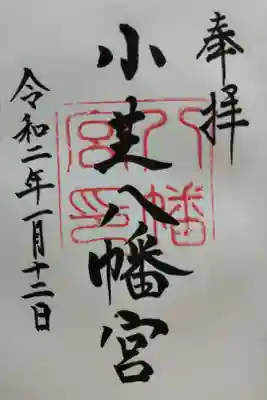 奉拝
小芝八幡宮
八幡宮印
令和二年一月十二日